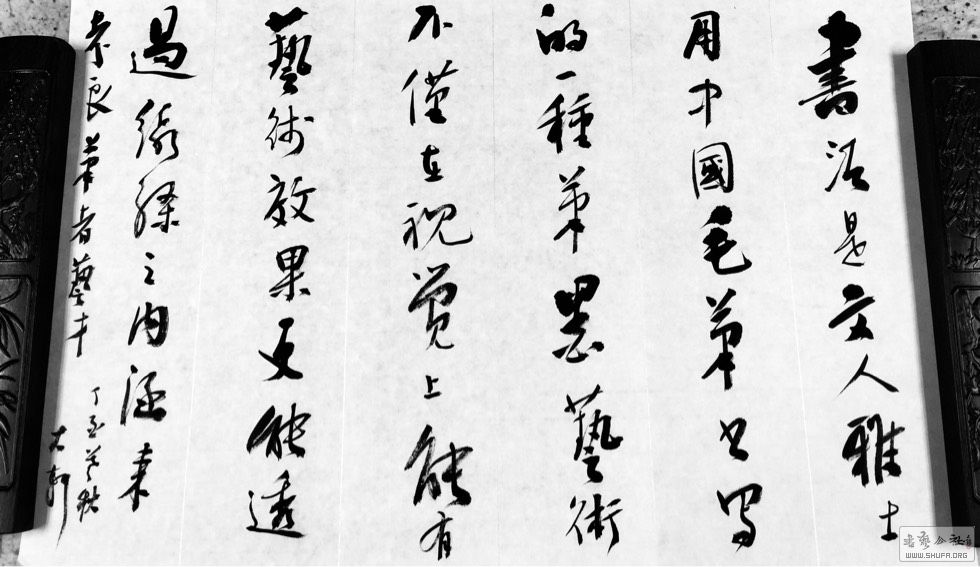 書法是文人雅士
用中國毛筆书寫
的一種筆墨藝術
不僅在視覺上能有
藝術效果更能透
過線條之內涵来
筆者藝才
丁酉暮秋
书艺公社
WWW.SHUFA.ORG